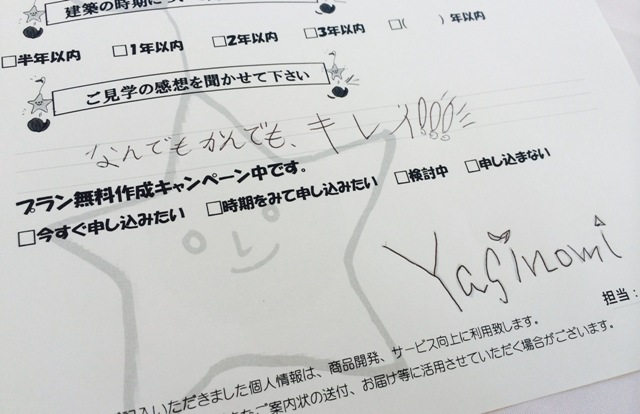 建築の時期に
□半年以内 □1年以内 □2年以内 □3年以内 □( )年以内
ご見学の感想を聞かせて下さい
なんでもかんでも、キレイ!!!!
プラン無料作成キャンペーン中です。
□今すぐ申し込みたい □時期をみて申し込みたい □検討中 □申し込まない
Yaginomi
担当:
いただきました個人情報は、商品開発、サービス向上に利用致します。
ご案内状の送付、お届け等に活用させていただく場合がございます。